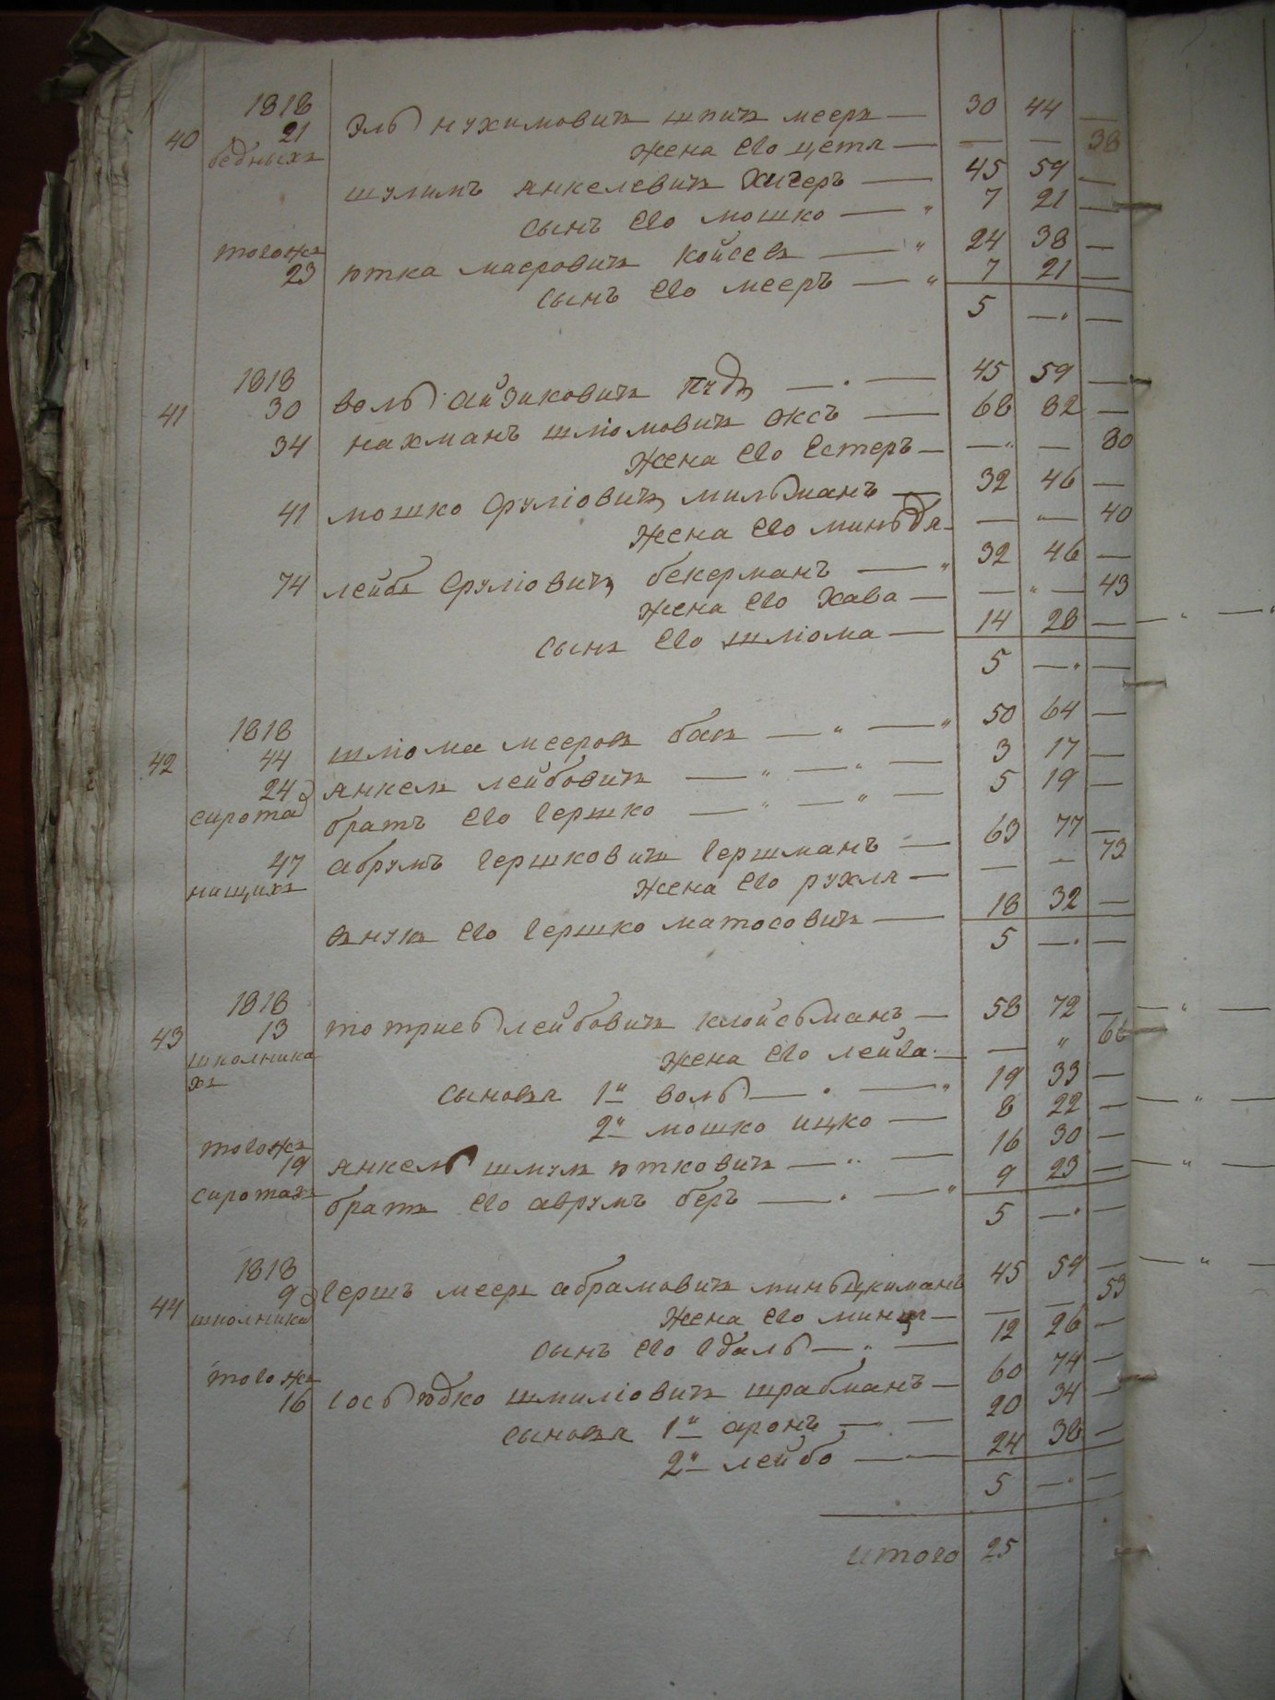 1818
40 21 Эль нухимовичъ шпиц мееръ — 30 44 —
бедныхъ жена Его цетля — — — 38
шулимъ янкелевичъ Хигеръ — 45 59 —
сынъ Его мошко — 7 21 —
тогожъ
23 ютка маеровичъ Койсевъ — 24 38 —
сынъ Его мееръ — 7 21 —
5 — —
1818
41 30 воль айзиковичъ — 45 59 —
34 нахманъ шліомовичъ оксъ — 68 82 —
жена Его Естеръ — — — 80
41 мошко сруліовичъ мильманъ — 32 46 —
жена Его миньдля — — 40
74 лейба сруліовичъ бекерманъ — 32 46 —
жена Его Хава — — — 43
сынъ Его шліома — 14 28 —
5 — —
1818
42 44 шліома мееровъ бакъ — 50 64 —
24 янкель лейбовичъ — 3 17 —
сирота братъ Его гершко — 5 19 —
47 абрумъ гершковичъ гершманъ — 63 77 —
нищихъ жена Его рухля — — — 73
внукъ Его гершко матосовичъ — 18 32 —
5 — —
1818
43 13 лейбовичъ клойсьманъ — 58 72 —
школника
хъ жена Его лейга — — 66
сыновя 1й воль — 19 33 —
2й мошко ицко — 8 22 —
тогожъ
19 янкель шмуль ютковичъ — 16 30 —
сиротахъ братъ Его аврумъ беръ — 9 23 —
5 — —
1818
44 9 гершъ мееръ абрамовичъ — 45 59 —
школника жена Его — — — 53
сынъ Его Гдаль — 12 26 —
тогожъ
16 іось юдко шмиліовичъ шрабманъ — 60 74 —
сыновя 1й аронъ — 20 34 —
2й лейбо — 24 38 —
5 — —
итого 25